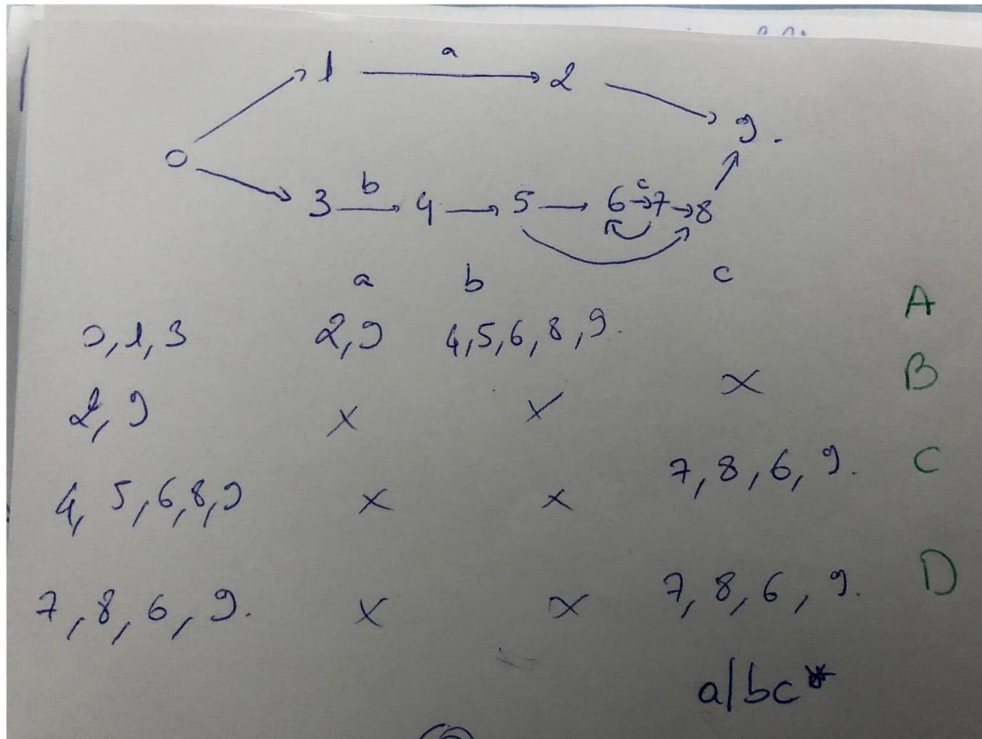 a
1 2
9.
0
b c
3 4 5 6 7 8
a b c
0,1,3 2,9 4,5,6,8,9. A
2,9 x x x B
4,5,6,8,9 x x 7,8,6,9. C
7,8,6,9. x x 7,8,6,9. D
a/bc*